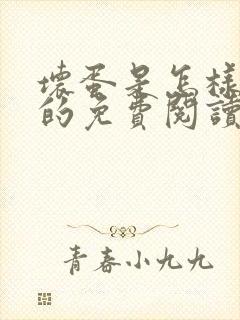 壞蛋是怎樣
的免費閱讀
青春小九九